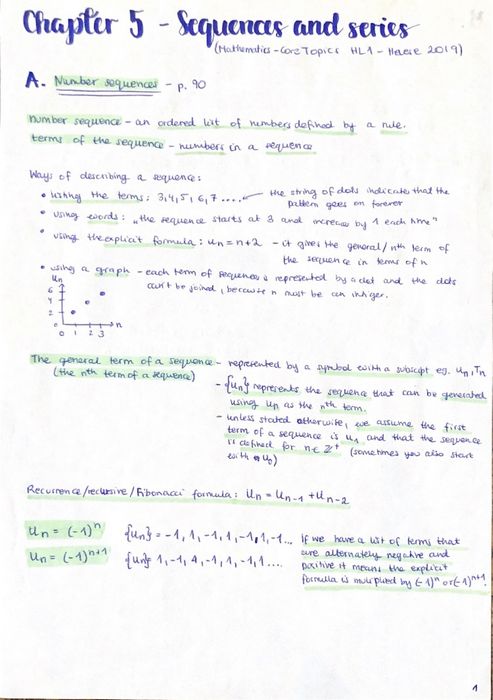 Chapter 5 - Sequences and series
(Mathematics - Core Topics HL1 - Haese 2019)
A. Number sequences - p. 90
number sequence - an ordered list of numbers defined by a rule.
terms of the sequence - numbers in a sequence
Ways of describing a sequence:
• listing the terms: 3,4,5,6,7.... ← the string of dots indicates that the
pattern goes on forever
• using words: „the sequence starts at 3 and increases by 1 each time"
• using the explicit formula: un = n+2 - it gives the general/nth term of
the sequence in terms of n
• using a graph - each term of sequence is represented by a dot and the dots
can't be joined, because n must be an integer.
un
6
4
2
0 1 2 3 n
The general term of a sequence - represented by a symbol with a subscript eg. un, Tn
(the nth term of a sequence)
- {un} represents the sequence that can be generated
using un as the nth term.
- unless stated otherwise, we assume the first
term of a sequence is u1 and that the sequence
is defined for n∈Z+ (sometimes you also start
with u0)
Recurrence/recursive/Fibonacci formula: un = un-1 + un-2
un = (-1)^n {un} = -1, 1, -1, 1, -1, 1, -1... If we have a list of terms that
are alternately negative and
un = (-1)^n+1 {un} = 1, -1, 1, -1, 1, -1, 1.... positive it means the explicit
formula is multiplied by (-1)^n or (-1)^n+1.
1